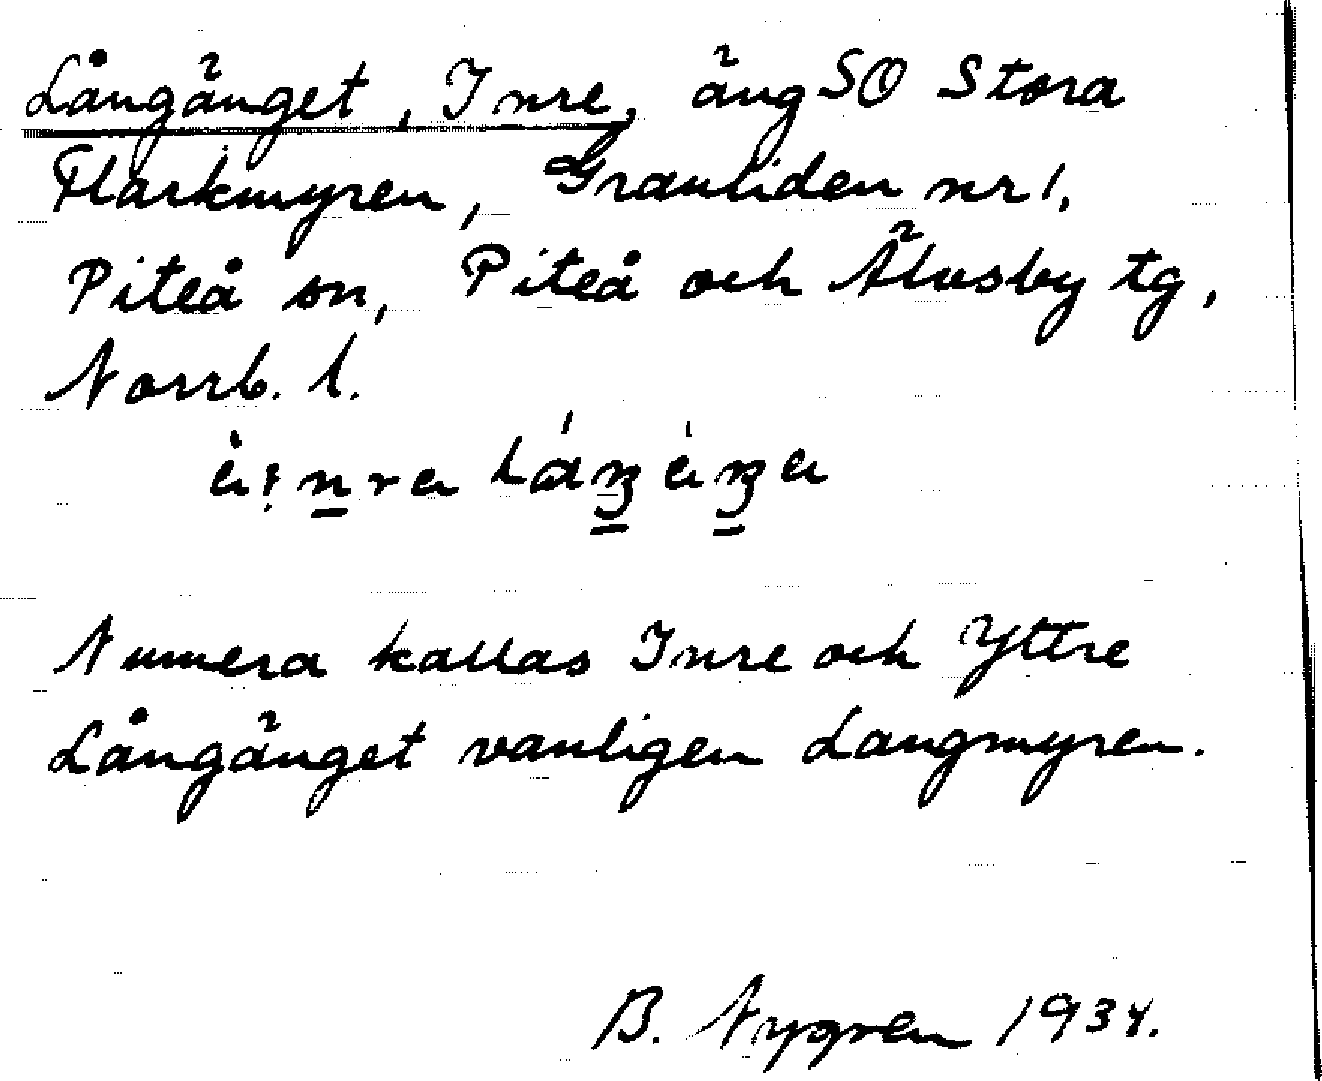 Långänget, Inre, äng SO Stora
Flarkmyren, Granliden nr 1.
Piteå sn, Piteå och Älvsby tg,
Norrb. l.
Numera kallas Inre och Yttre
Långänget vanligen Långmyren.
B. Nygren 1934.